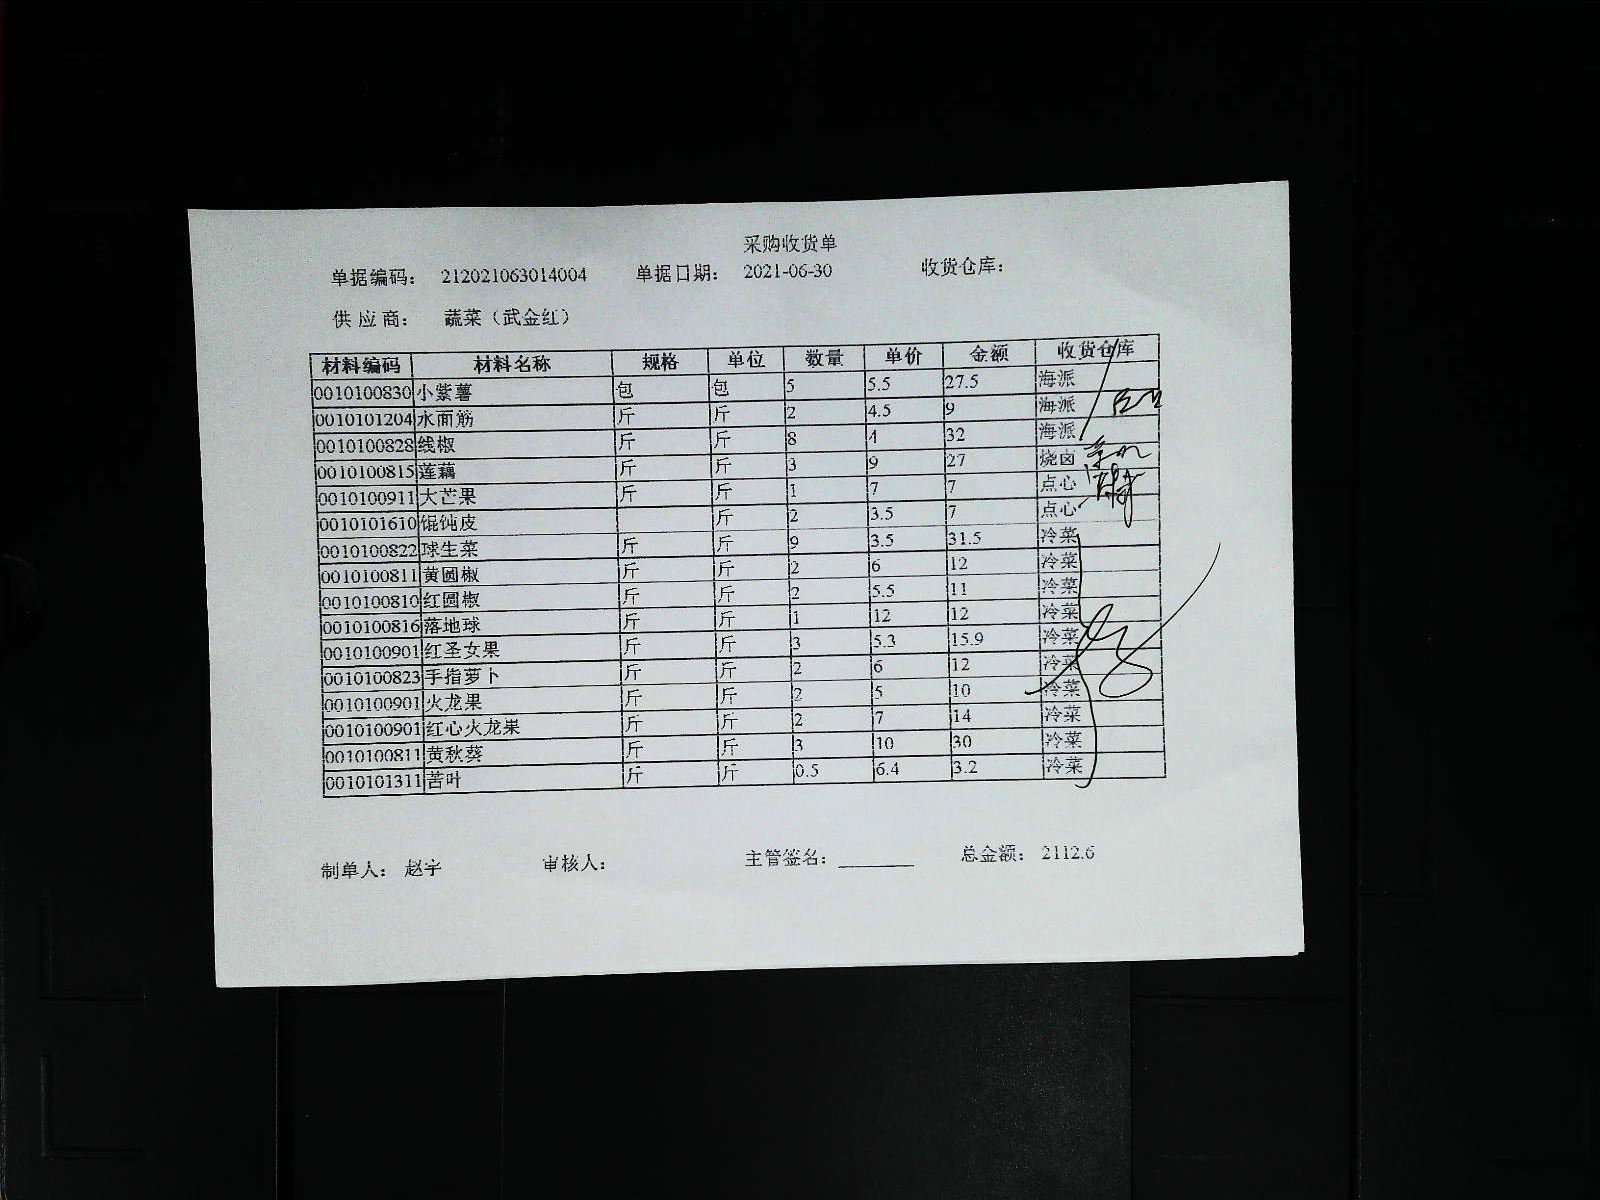 采购收货单
单据编码： 212021063014004 单据日期： 2021-06-30 收货仓库：
供 应 商： 蔬菜（武金红）
材料编码 材料名称 规格 单位 数量 单价 金额 收货仓库
0010100830 小紫薯 包 包 5 5.5 27.5 海派
0010101204 水面筋 斤 斤 2 4.5 9 海派
0010100828 线椒 斤 斤 8 4 32 海派
0010100815 莲藕 斤 斤 3 9 27 烧卤
0010100911 大芒果 斤 斤 1 7 7 点心
0010101610 馄饨皮 斤 2 3.5 7 点心
0010100822 球生菜 斤 斤 9 3.5 31.5 冷菜
0010100811 黄圆椒 斤 斤 2 6 12 冷菜
0010100810 红圆椒 斤 斤 2 5.5 11 冷菜
0010100816 落地球 斤 斤 1 12 12 冷菜
0010100901 红圣女果 斤 斤 3 5.3 15.9 冷菜
0010100823 手指萝卜 斤 斤 2 6 12 冷菜
0010100901 火龙果 斤 斤 2 5 10 冷菜
0010100901 红心火龙果 斤 斤 2 7 14 冷菜
0010100811 黄秋葵 斤 斤 3 10 30 冷菜
0010101311 苦叶 斤 斤 0.5 6.4 3.2 冷菜
制单人： 赵宇 审核人： 主管签名： 总金额： 2112.6